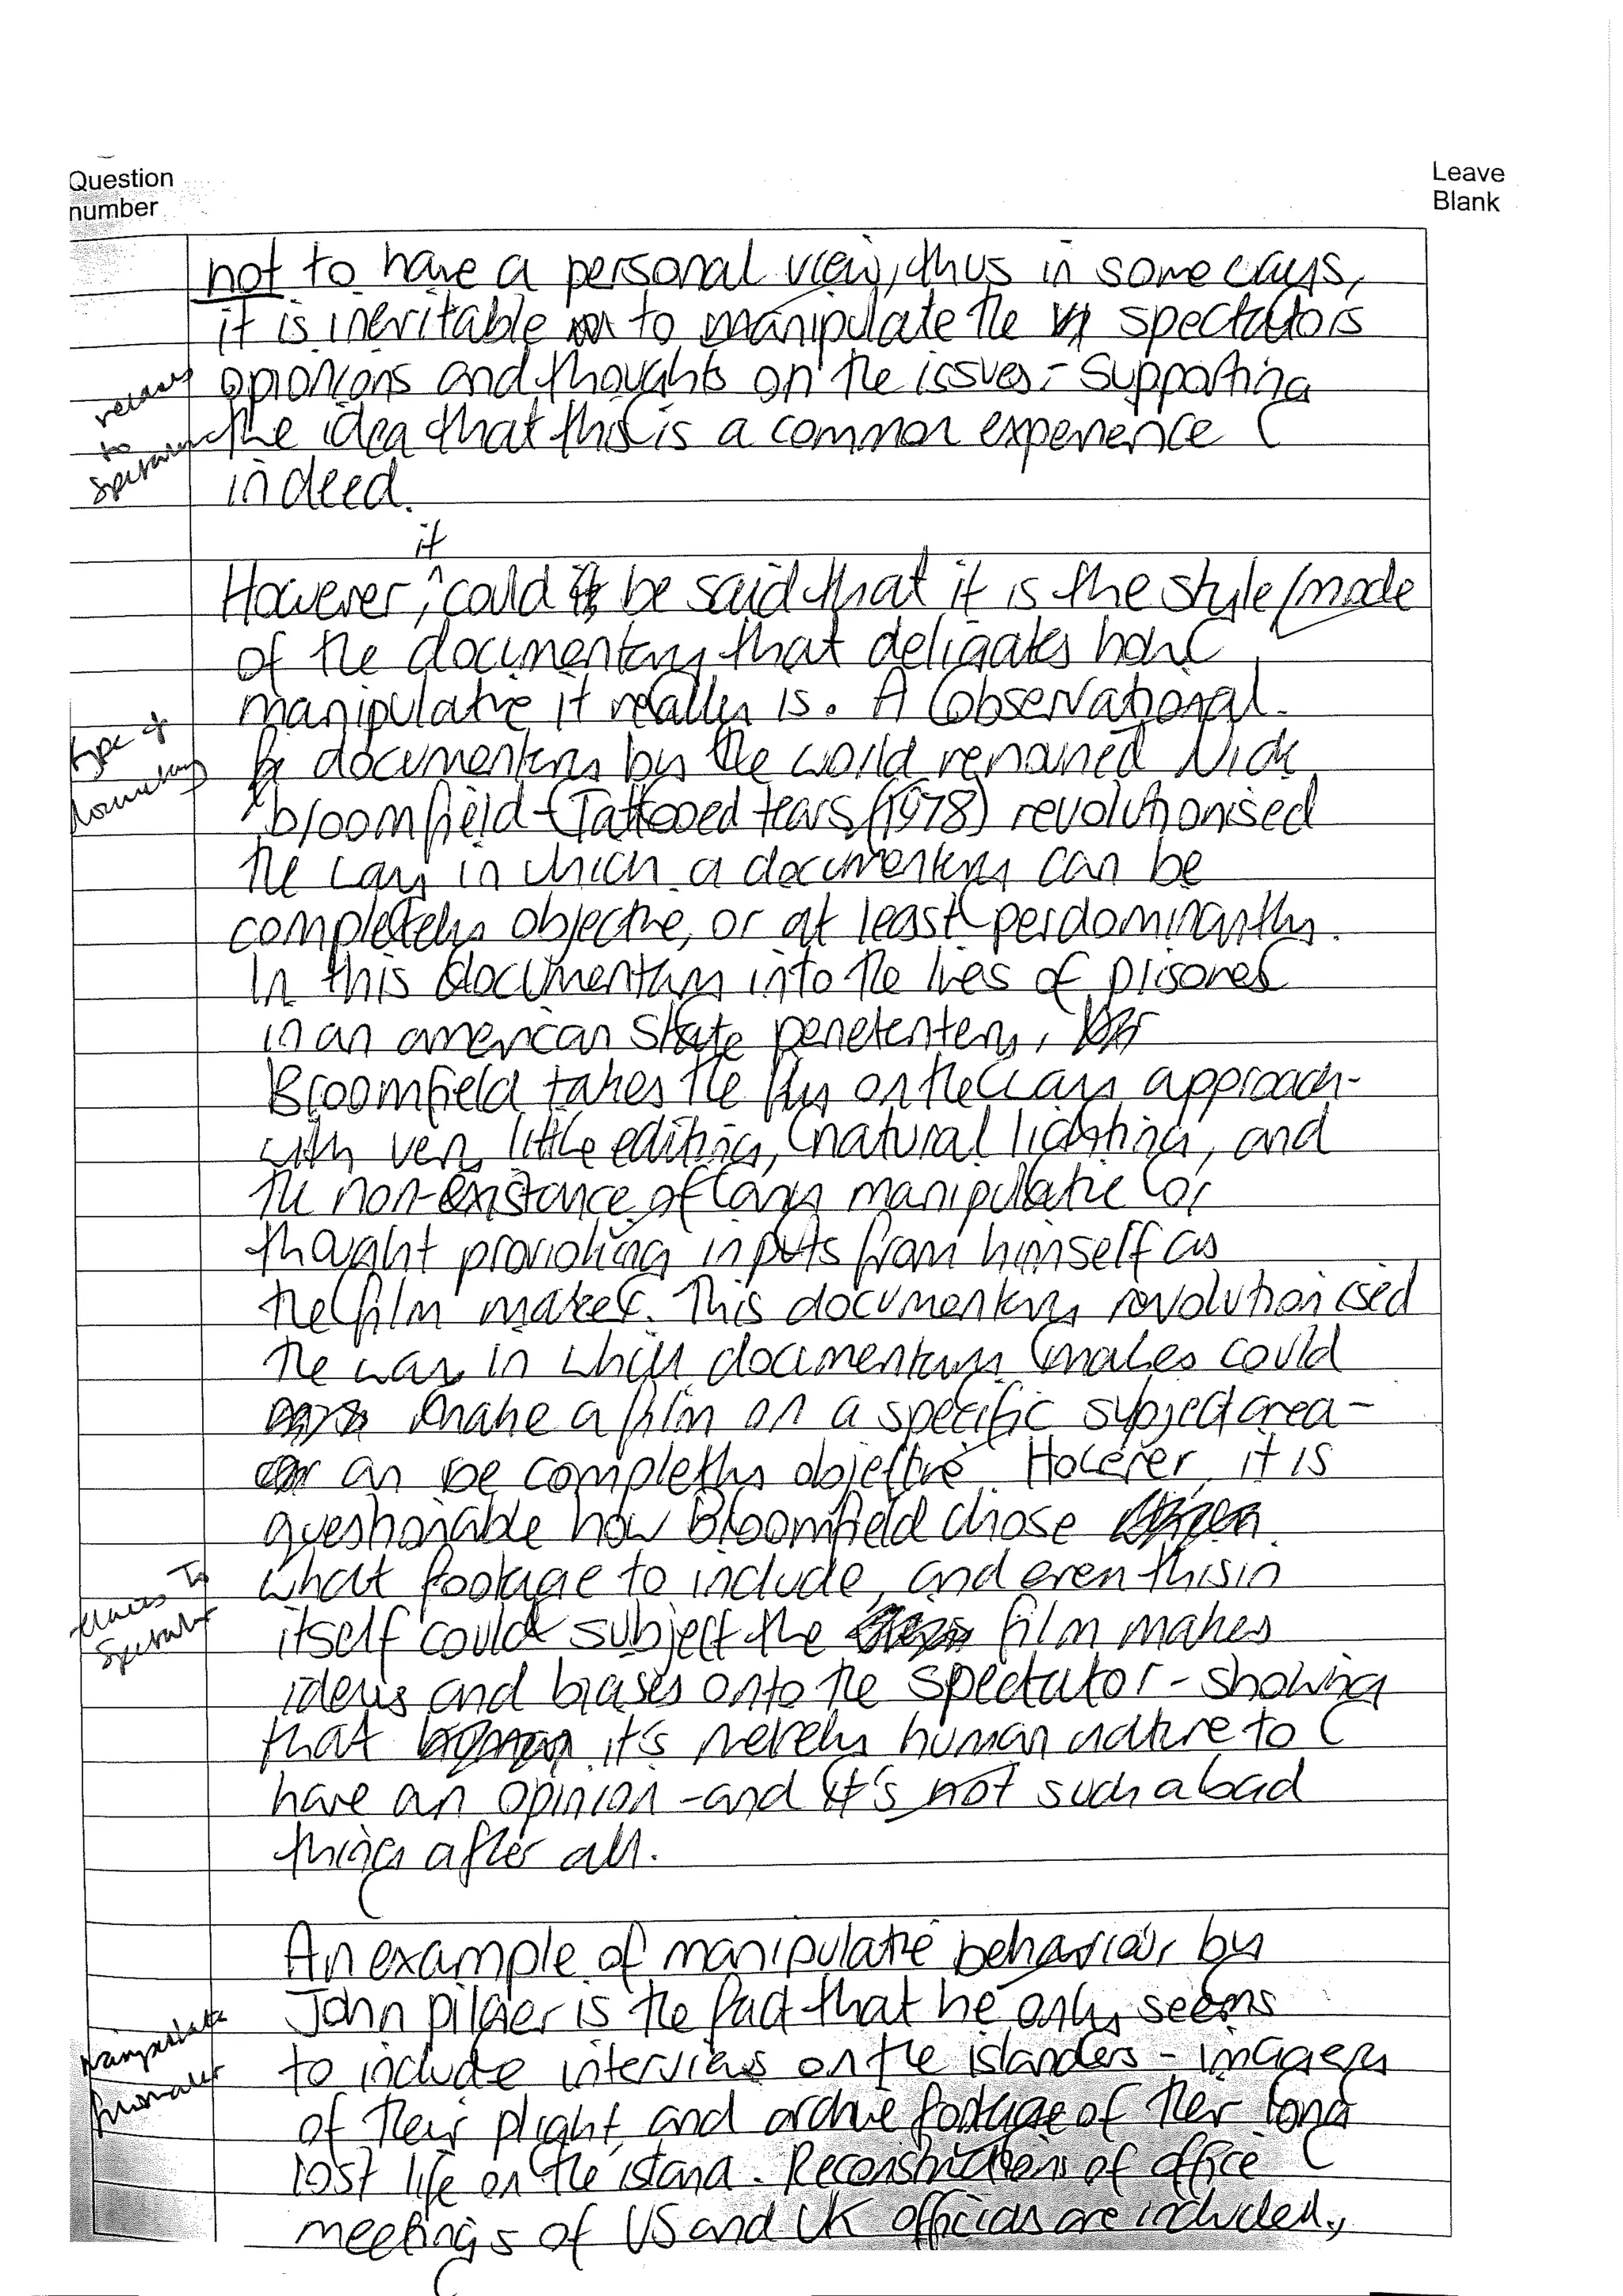 Question
number
Leave
Blank
not to have a personal view, thus in some ways,
it is ineritable to manipulate the spectators
opionions and thoughts on the issues - supporting
the idea that this is a common experience
indeed.
it
However, could be said that it is the style/mode
of the documentary that deligates how
manipulative it really is. A observational
documentary by the world renowned Nick
bloomfield - (Tattooed tears (1978) revolutionised
the way in which a documentary can be
completely objective, or at least perdominantly.
In this documentary into the lives of prisoners
in an american state penetentery,
Broomfield takes the fly on the wall approach -
with very little editing, natural lighting, and
the non-existance of any manipulative or
thought provoking inputs from himself as
the film maker. This documentary revolutionised
the way in which documentary makes could
make a film on a specific subject area -
an be completly objective. However, it is
questionable how Bloomfield chose
what footage to include, and even this in
itself could subject the film makes
ideas and biases onto the spectator - showing
that it's merely human nature to
have an opinion - and it's not such a bad
thing after all.
An example of manipulative behaviour by
John pilger is the fact that he only seems
to include interviews on the islanders - imagery
of their plight, and archive footage of their long
lost life on the island. Reconstructions of office
meetings of US and UK officials are included,
type of
to